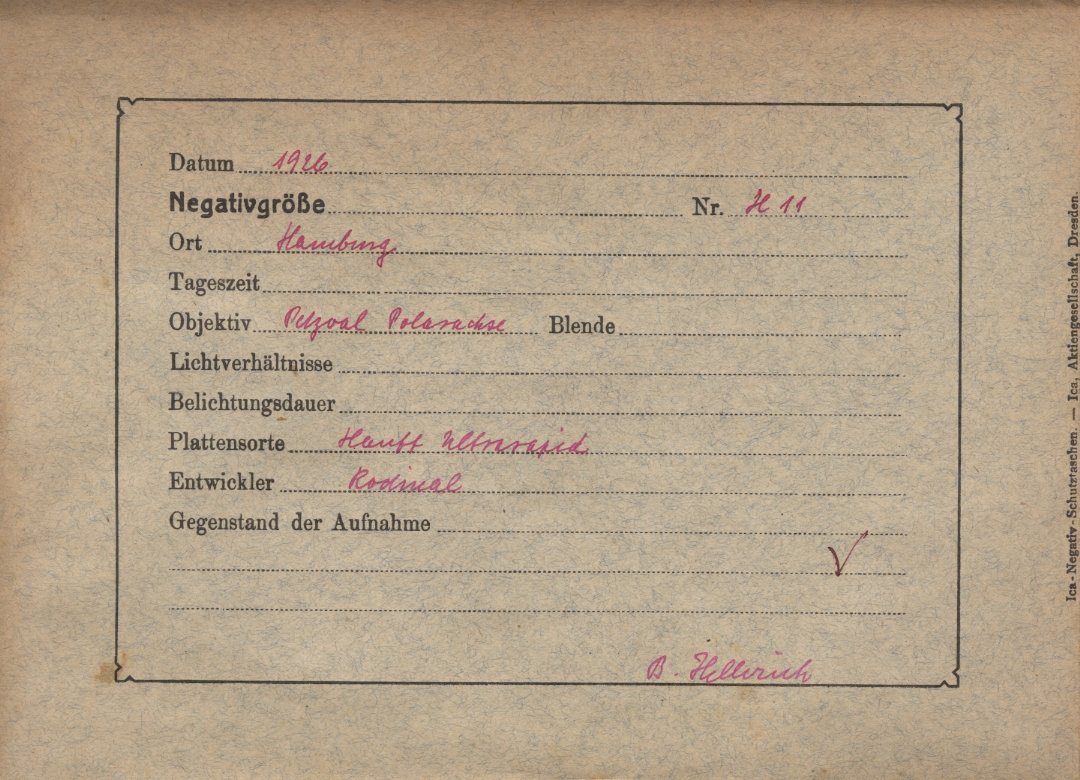 Datum 1926
Negativgröße Nr. H 11
Ort Hamburg
Tageszeit
Objektiv Petzval Polarachse Blende
Lichtverhältnisse
Belichtungsdauer
Plattensorte Hauff Ultrarapid
Entwickler Rodinal
Gegenstand der Aufnahme
B.
Ica-Negativ-Schutztaschen. — Ica, Aktiengesellschaft, Dresden.